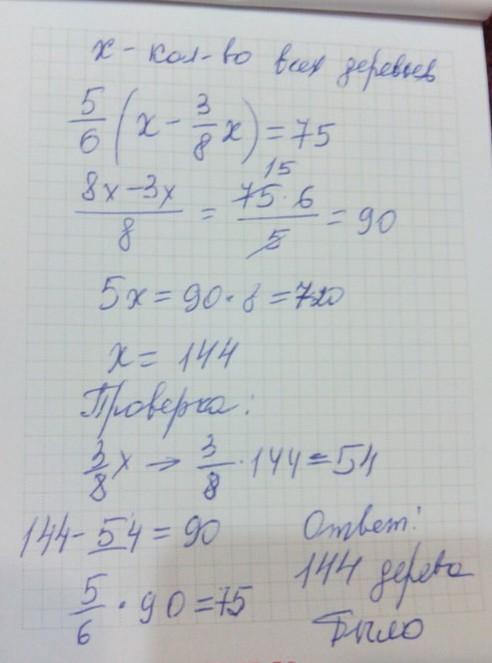 x - кол-во всех деревьев
5/6 (x - 3/8 x) = 75
(8x-3x)/8 = (75·6)/5 = 90
15
5x = 90·8 = 720
x = 144
Проверка:
3/8 x → 3/8 · 144 = 54
144 - 54 = 90
5/6 · 90 = 75
Ответ:
144 дерева
Было